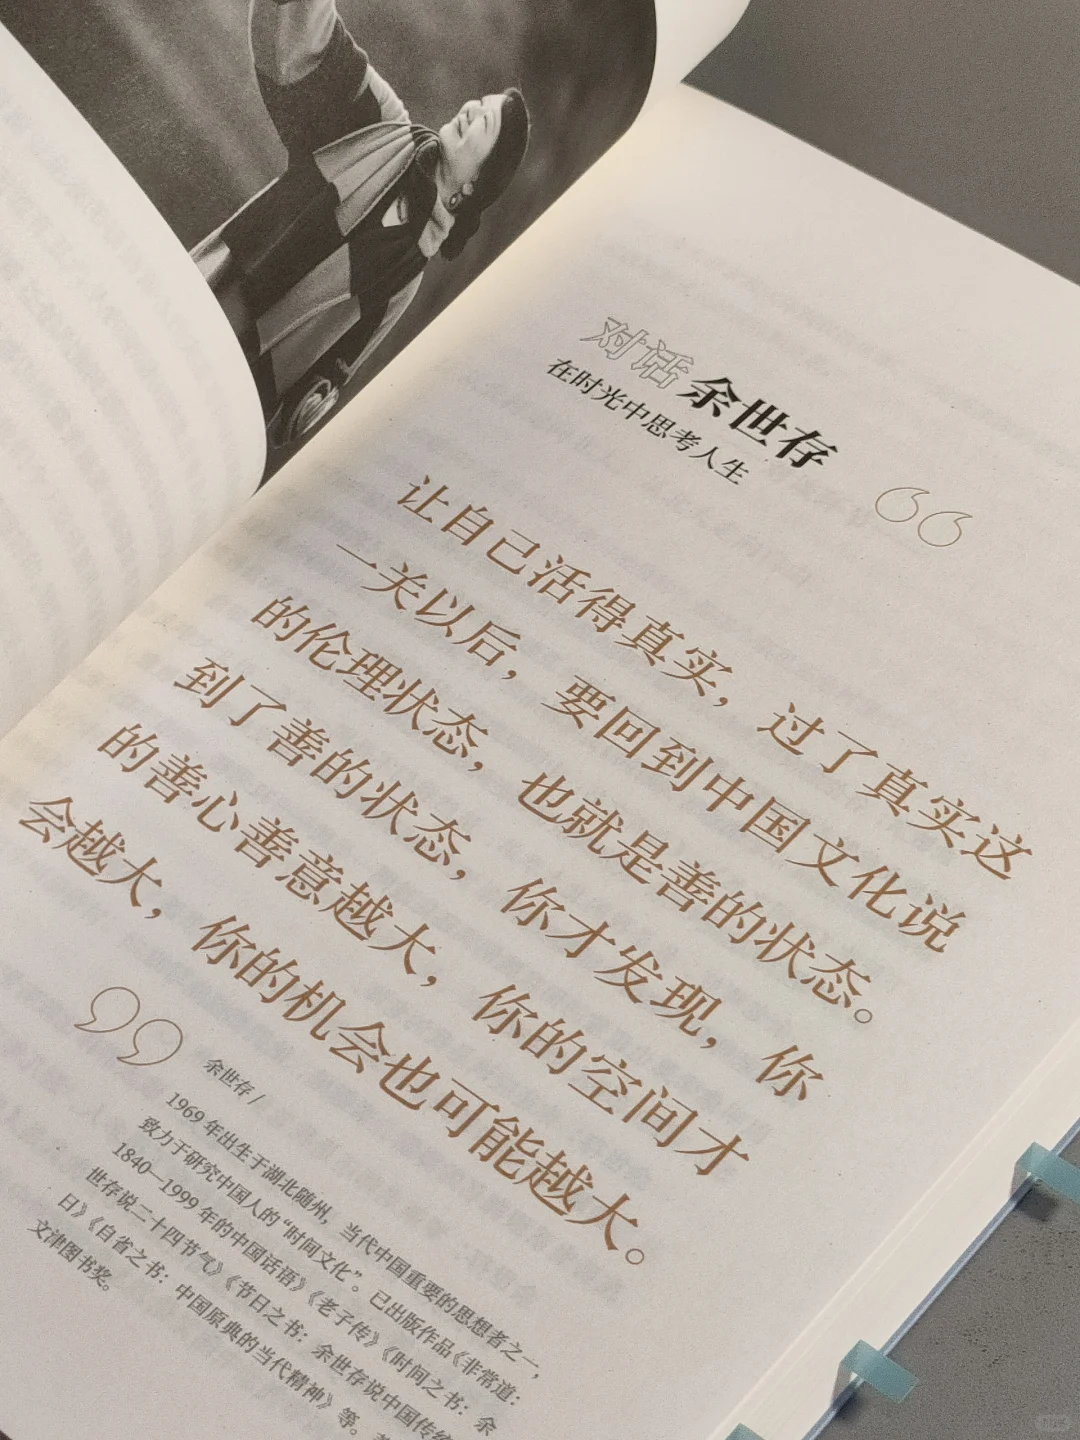 对话 余世存
在时光中思考人生
让自己活得真实，过了真实这
一关以后，要回到中国文化说
的伦理状态，也就是善的状态。
到了善的状态，你才发现，你
的善心善意越大，你的空间才
会越大，你的机会也可能越大。
余世存/
1969年出生于湖北随州，当代中国重要的思想者之一，
致力于研究中国人的“时间文化”。已出版作品《非常道：
1840—1999年的中国话语》《老子传》《时间之书：余
世存说二十四节气》《节日之书：余世存说中国传统
日》《自省之书：中国原典的当代精神》等。
文津图书奖。